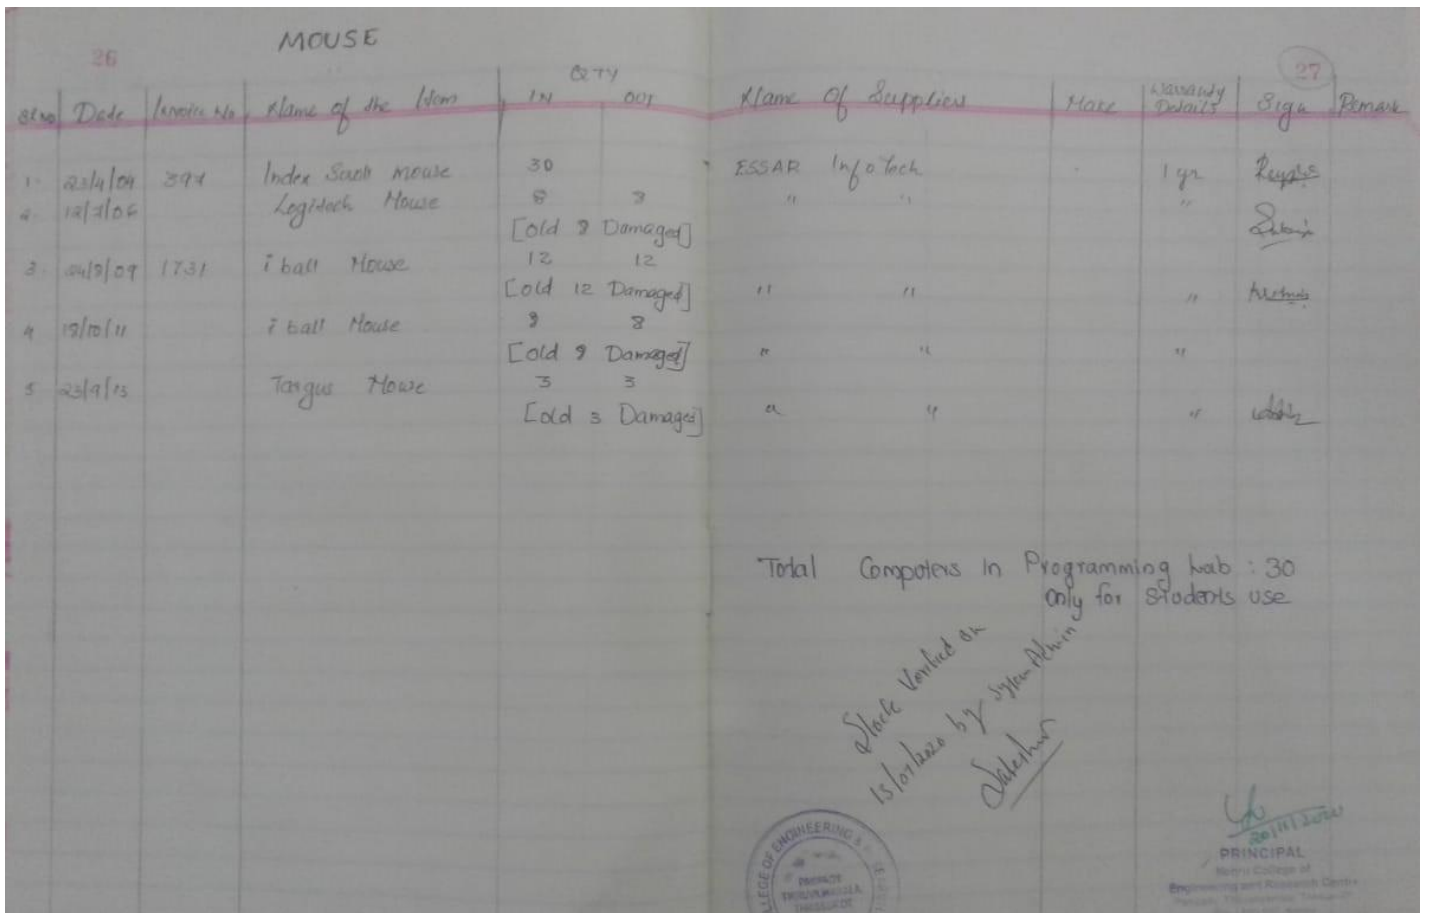 26
MOUSE
27
QTY
Sl No Date Invoice No Name of the Item IN OUT Name Of Suppliers Make Warranty Details Sign Remark
1. 397 Index Mouse 30 ESSAR Infotech 1 yr
2. 12/7/06 Logitech Mouse 8 8 " " "
[Old 8 Damaged]
3 1731 i ball Mouse 12 12
[Old 12 Damaged] " " "
4 18/10/11 i ball Mouse 8 8
[Old 8 Damaged] " " "
5 23/9/13 Targus Mouse 3 3
[Old 3 Damaged] " " "
Total Computers in Programming Lab : 30
only for Students use
Stock Verified on
13/07/2020 by System Admin
COLLEGE OF ENGINEERING &
PAMPADY
THIRUVILWAMALA
THRISSUR DT
20/11/2020
PRINCIPAL
Nehru College of
Engineering and Research Centre